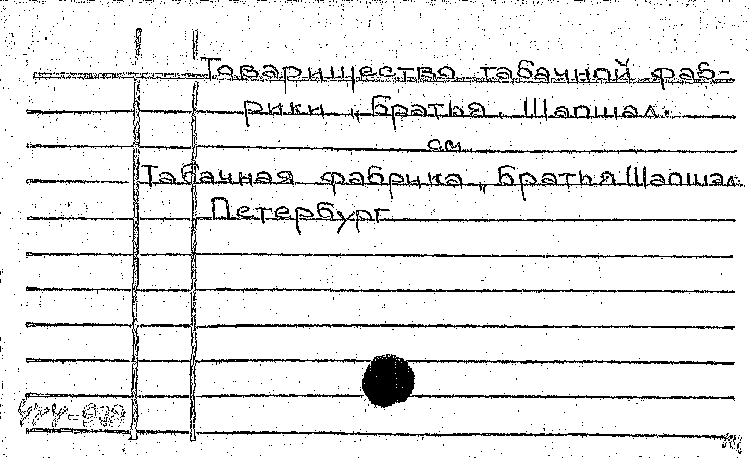 Товарищество табачной фаб-
рики „Братья Шапшал"
см
Табачная фабрика „Братья Шапшал"
Петербург